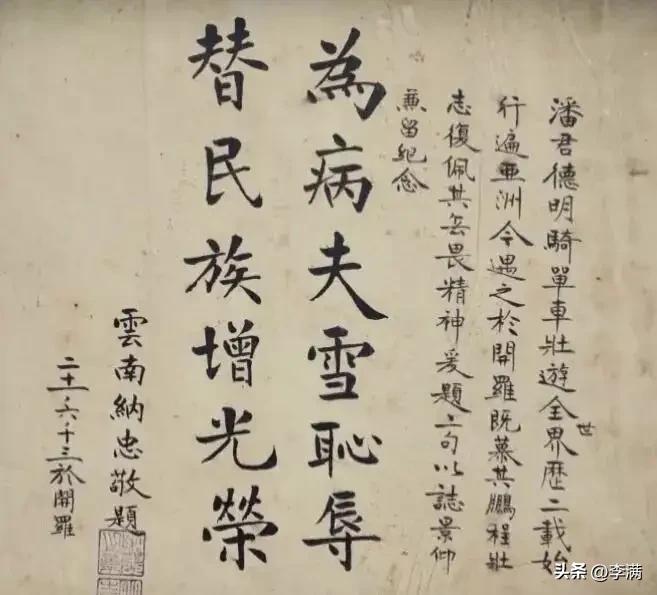 潘君德明騎單車壯遊全世界歷二載始
行遍亞洲今遇之於開羅既慕其鵬程壯
志復佩其無畏精神爰題二句以誌景仰
兼留紀念
為病夫雪恥辱
替民族增光榮
雲南納忠敬題
二十一·六·十三於開羅
头条 @李满